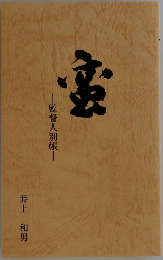 蛮
―監督人別帳―
井上 和男